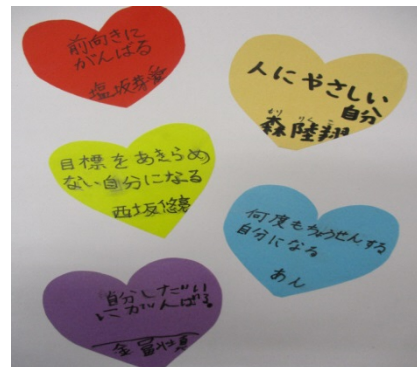 前向きに
がんばる
人にやさしい
自分
森陸翔
目標をあきらめ
ない自分になる
西坂悠
何度もちょうせんする
自分になる
あん
自分しだい
にがんばる